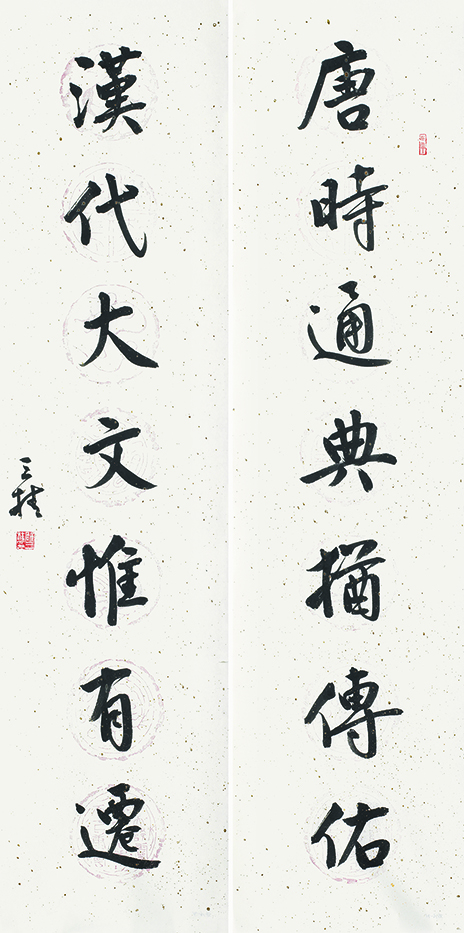 唐時通典猶傳佑
漢代大文惟有遷